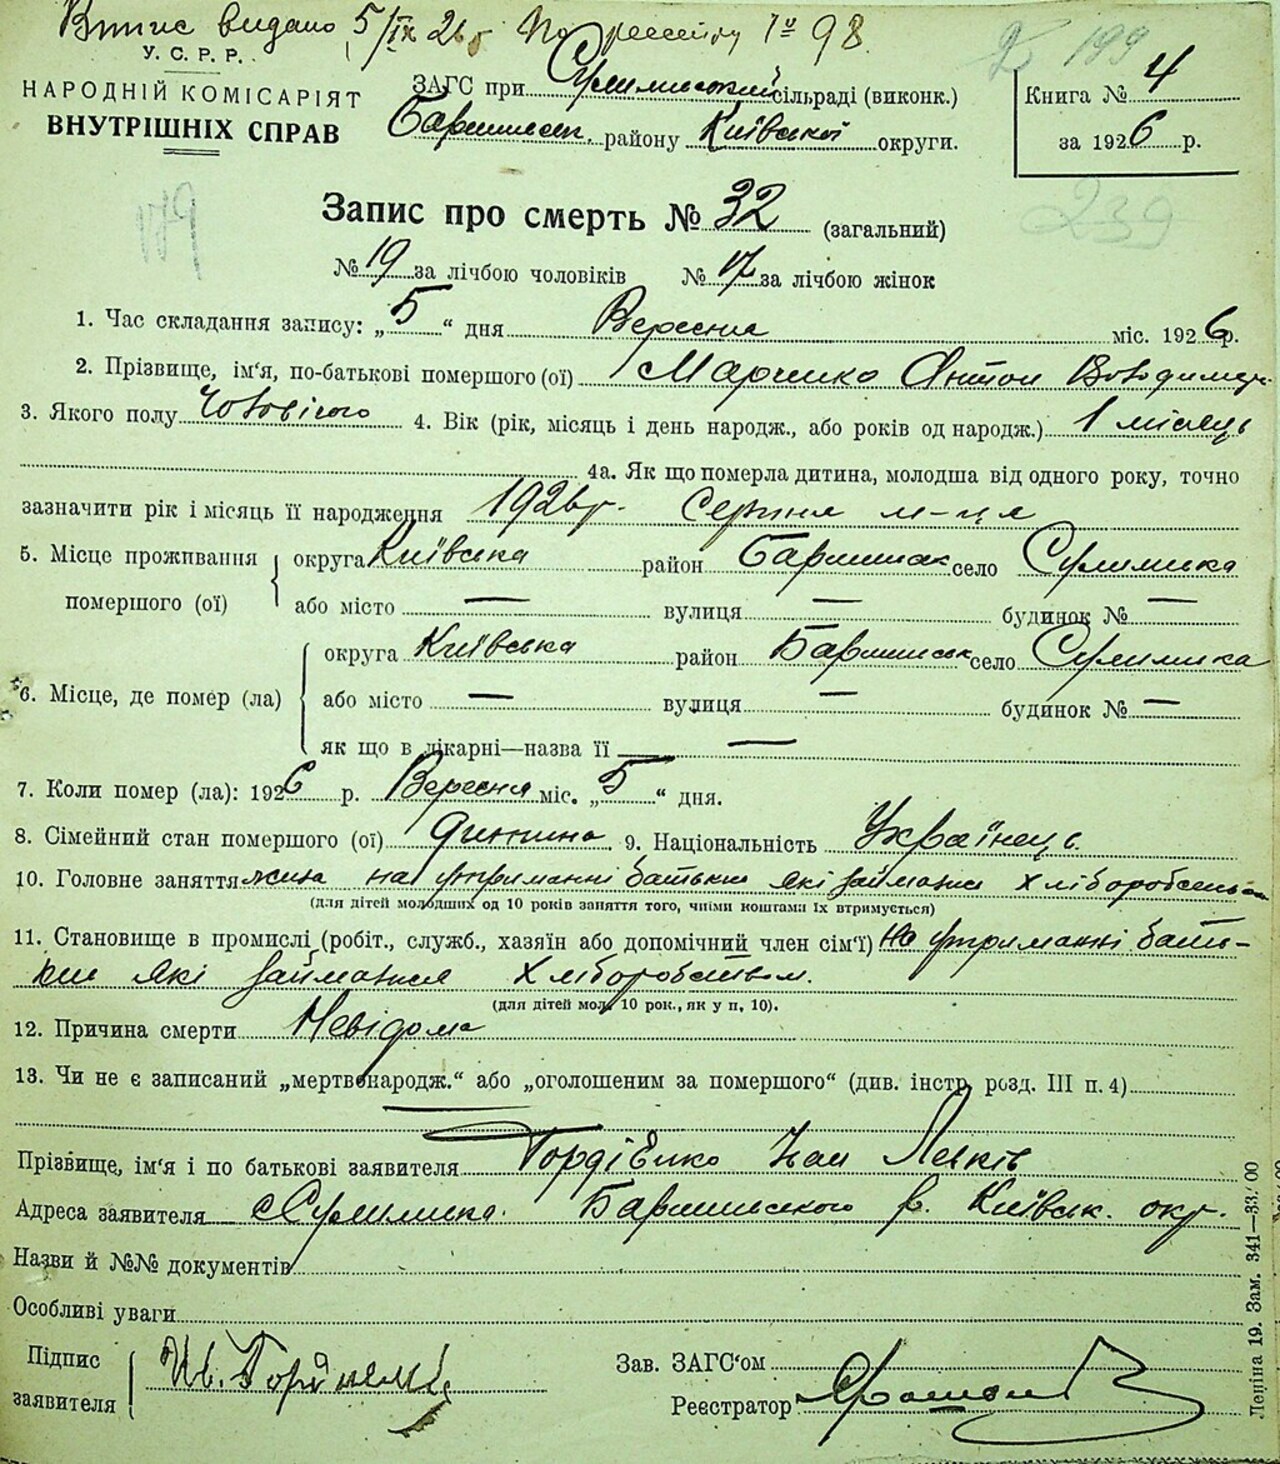 Витис видано 5/IX 26 р По реєстру № 98
У. С. Р. Р.
2 199
НАРОДНІЙ КОМІСАРІЯТ
ВНУТРІШНІХ СПРАВ
ЗАГС при Сулимівській сільраді (виконк.)
Баришівськ. району Київської округи.
Книга № 4
за 1926 р.
179
239
Запис про смерть № 32 (загальний)
№ 19 за лічбою чоловіків № 17 за лічбою жінок
1. Час складання запису: „5“ дня Вересня міс. 1926 р.
2. Прізвище, ім'я, по-батькові помершого (ої) Марченко Антон Володимир.
3. Якого полу Чоловічого 4. Вік (рік, місяць і день народж., або років од народж.) 1 місяць
4а. Як що померла дитина, молодша від одного року, точно
зазначити рік і місяць її народження 1926 р. Серпня м-ця
5. Місце проживання помершого (ої) { округа Київська район Баришівськ село Сулимівка
або місто — вулиця — будинок № —
6. Місце, де помер (ла) { округа Київська район Баришівськ село Сулимівка
або місто — вулиця — будинок № —
як що в лікарні—назва її —
7. Коли помер (ла): 1926 р. Вересня міс. „5“ дня.
8. Сімейний стан помершого (ої) дитина 9. Національність Українець.
10. Головне заняття на утриманні батьки які займались Хліборобством
(для дітей молодших од 10 років заняття того, чиїми коштами їх втримується)
11. Становище в промислі (робіт., служб., хазяїн або допомічний член сім'ї) На утриманні бать-
ки які займались Хліборобством.
(для дітей мол. 10 рок., як у п, 10).
12. Причина смерти Невідома
13. Чи не є записаний „мертвонародж.“ або „оголошеним за помершого“ (див. інстр. розд. III п. 4)
Прізвище, ім'я і по батькові заявителя Гордієнко Іван
Адреса заявителя с. Сулимівка. Баришівського р. Київськ. окр.
Назви й №№ документів
Особливі уваги
Підпис
заявителя
Ів. Гордієнко
Зав. ЗАГС'ом
Реєстратор
Леніна 19. Зам. 341—33.